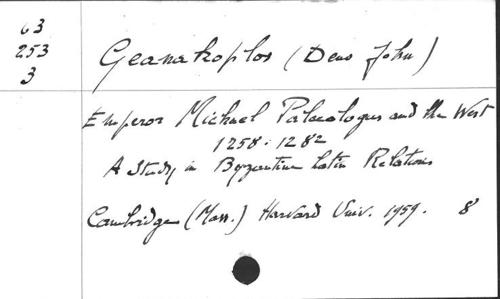 63
253
3
Geanakoplos (Deno John)
Emperor Michael Palaeologus and the West
1258-1282
A Study in Byzantine Latin Relations
Cambridge (Mass.) Harvard Univ. 1959. 8